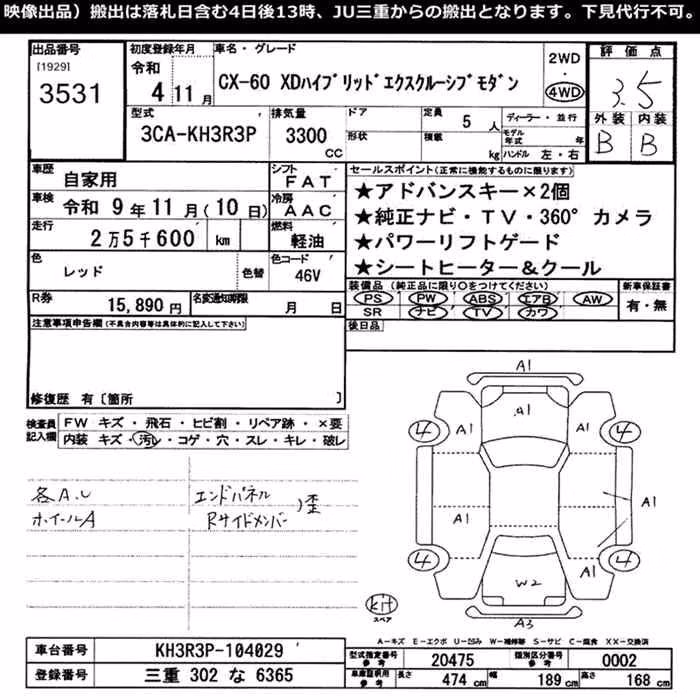 映像出品）搬出は落札日含む4日後13時、JU三重からの搬出となります。下見代行不可。
出品番号
[1929]
3531
初度登録年月
令和
4 11月
車名・グレード
CX-60 XDハイブリッドエクスクルーシブモダン
2WD
・
4WD
評価点
3.5
外装 内装
B B
型式
3CA-KH3R3P
排気量
3300
CC
ドア
形状
定員
5 人
積載
kg
ディーラー・並行
モデル年式 年
ハンドル 左・右
車歴
自家用
シフト
FAT
車検
令和 9年11月(10日)
冷房
AAC
走行
2万5千600 km
燃料
軽油
色
レッド
色替
色コード
46V
R券
15,890円
名変通知期限
月 日
セールスポイント(正常に機能するものに限ります)
★アドバンスキー×2個
★純正ナビ・TV・360°カメラ
★パワーリフトゲード
★シートヒーター&クール
装備品 (純正品に限り○をつけてください)
PS PW ABS エアB AW
SR ナビ TV カワ
新車保証書
有・無
後日品
注意事項申告欄(不具合内容等は具体的に記入して下さい)
修復歴 有〔箇所 〕
検査員
記入欄
FW キズ・飛石・ヒビ割・リペア跡・×要
内装 キズ・汚レ・コゲ・穴・スレ・キレ・破レ
各A.U
ホイールA
エンドパネル
Rサイドメンバー
)歪
A1
A1
4
A1
A1
4
A1
A1
A1
4
W2
4
A3
kit
スペア
A-キズ E-エクボ U-凹み W-補修跡 S-サビ C-腐食 XX-交換済
車台番号
KH3R3P-104029
登録番号
三重 302 な 6365
型式指定番号
参考
20475
類別区分番号
参考
0002
車庫証明用
参考
長さ 474 cm
幅 189 cm
高さ 168 cm